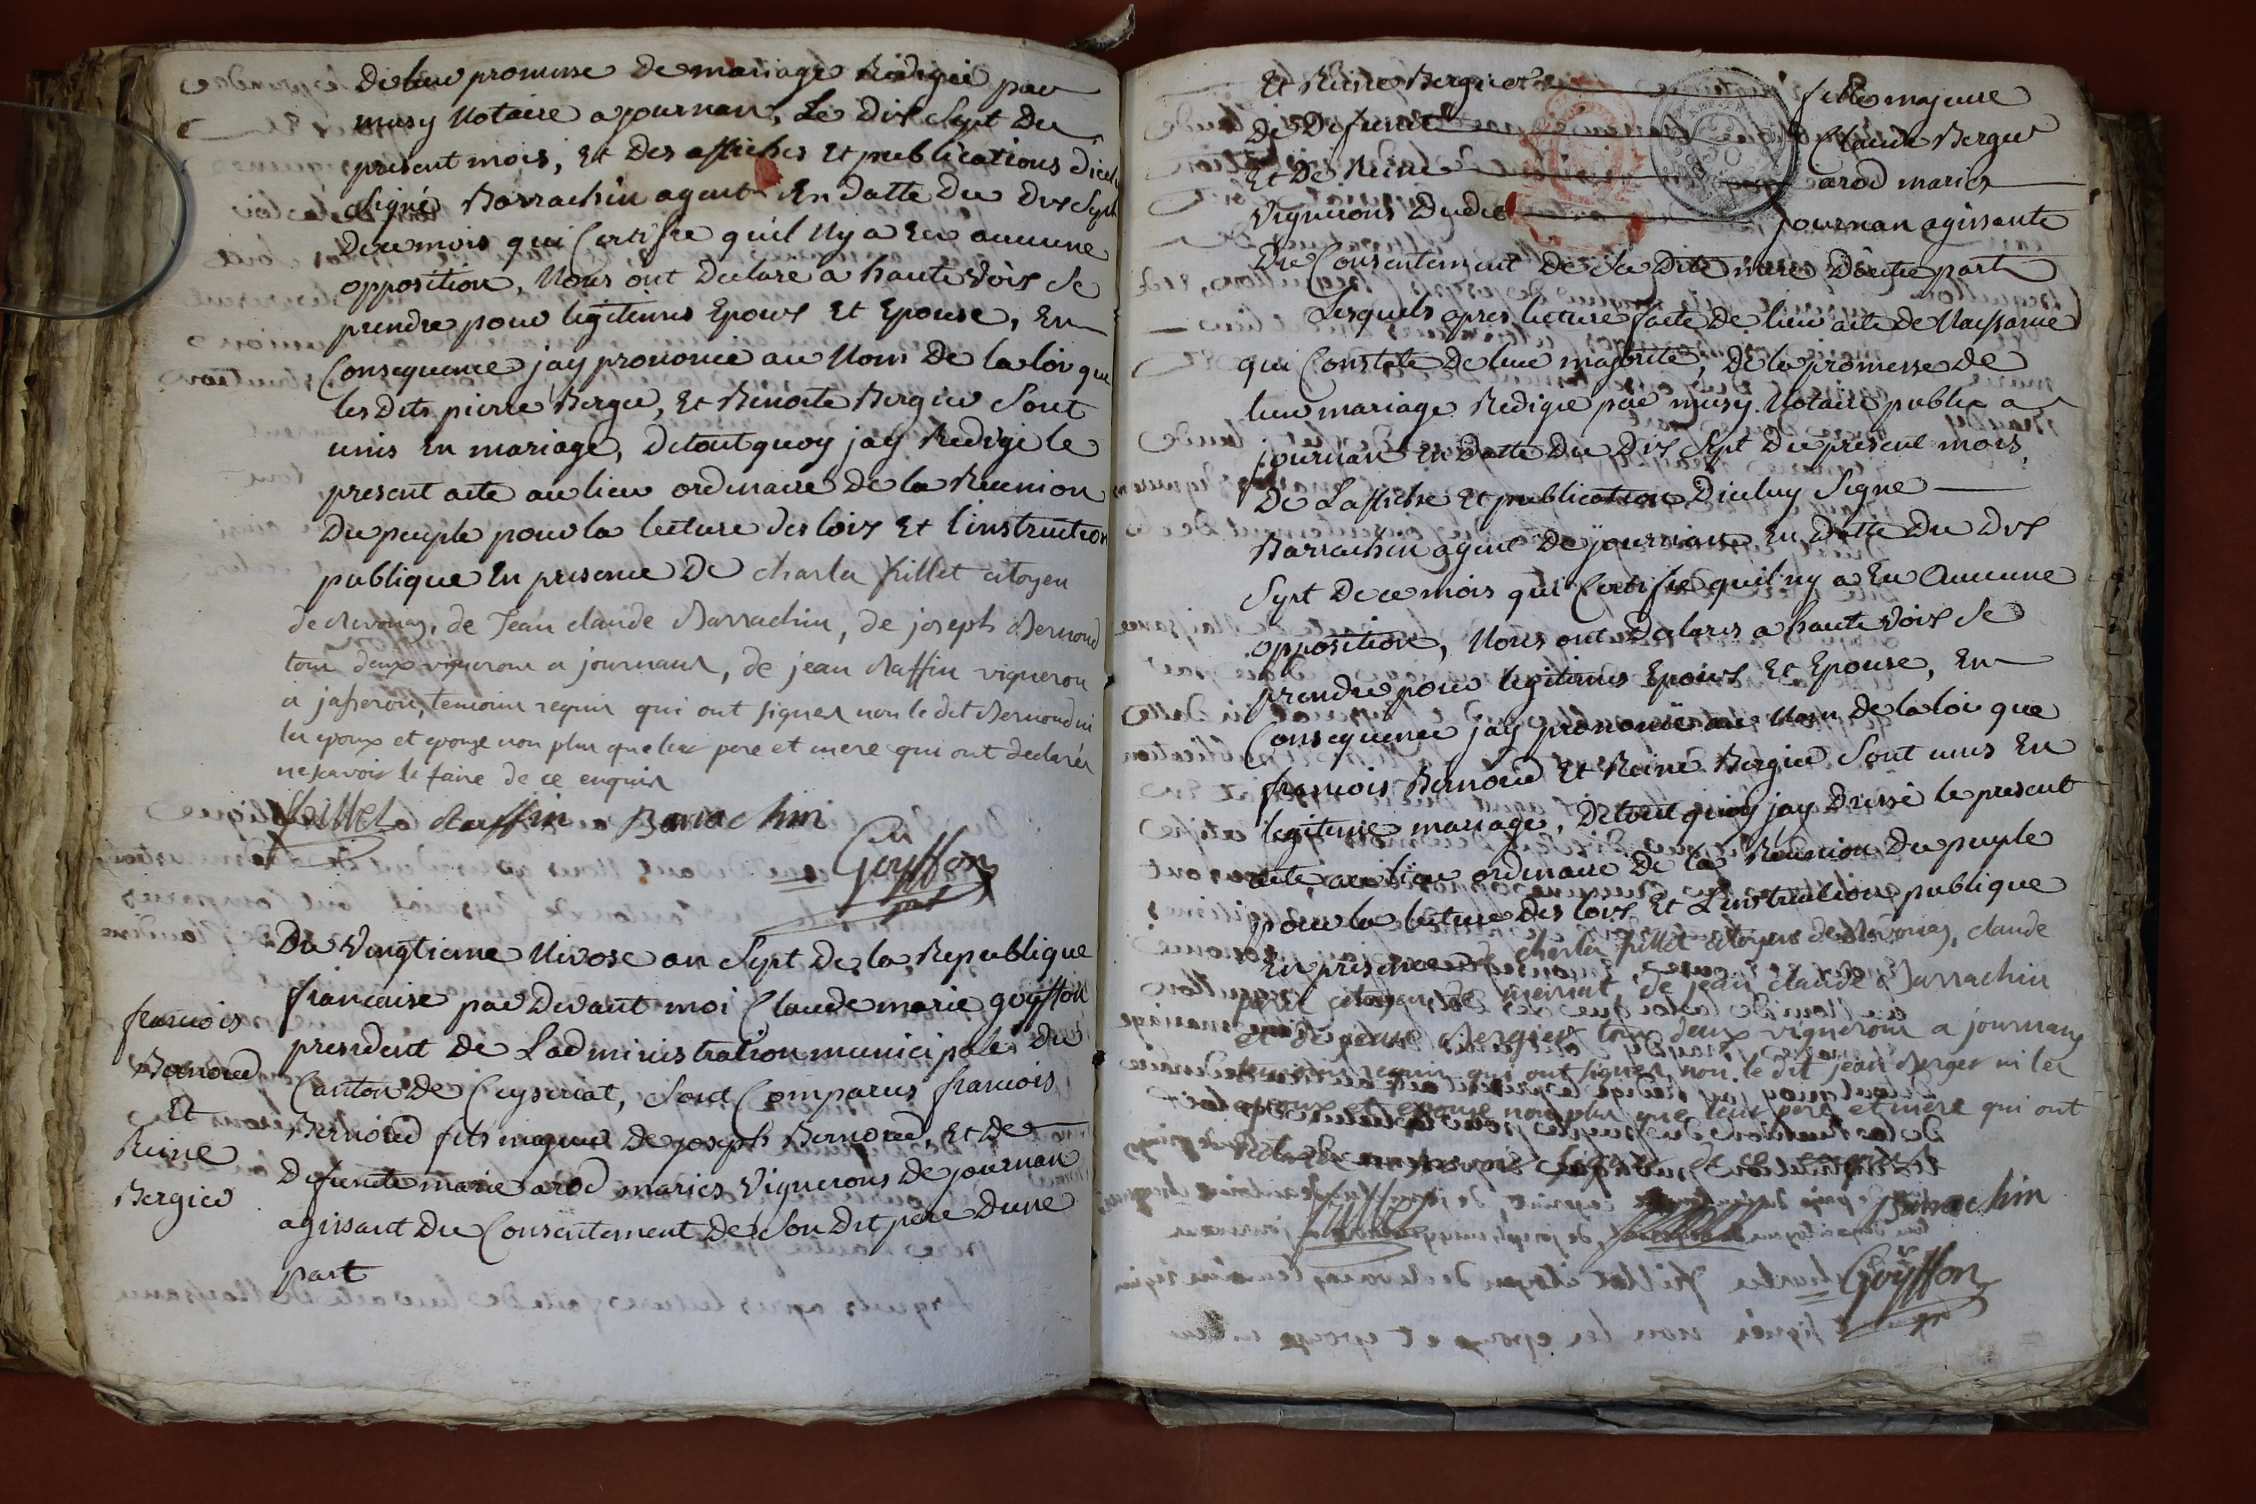 De leur promesse De mariage Redigée par
musy Notaire a journan, Le Dix Sept Du
present mois, Et Des affiches Et publications D'icel
Signé Barrachin agent En Datte Du Dix Sept
Dece mois qui Certifie qu'il Ny a Eu aucune
opposition, Nous ont Declare a haute voix Se
prendre pour legitimes Epoux Et Epouse, En
Consequence jay prononcé au Nom De la loi que
les Dits pierre Berger, Et Benoite Bergier Sont
unis En mariage, Detout quoy jay Redigé le
present acte au lieu ordinaire De la Reunion
Du peuple pour la lecture des loix Et l'instruction
publique En presence De charles fillet citoyen
de Revonas, de Jean claude Barrachin, de joseph Bernoud
tous deux vignerons a journans, de jean Raffin vigneron
a jasseron, temoins requis qui ont signes non le dit Bernoud ni
les epoux et epouze non plus que leur pere et mere qui ont declarés
ne scavoir le faire de ce enquis
fillet Raffin Barrachin
Goyffon
Du Vingtieme Nivose an Sept De la Republique
francaise par Devant moi Claude marie goyffon
president De L'administration municipale Du
Canton De Ceyseriat, Sont Comparus francois
Bernoud fils majeur De joseph Bernoud, Et De
Defunte marie arod maries Vignerons De journan
agissant Du Consentement De Son Dit pere Dune
part
francois
Bernoud
Et
Reine
Bergier
Et Reine Bergier fille majeure
De Defunt Claude Bergier
Et De Reine arod maries
Vignerons Dudit journan agissante
Du Consentement De Sa Dite mere D'autre part
Lesquels apres lecture faite De leur acte De Naissance
qui Constate De leur majorité, De la promesse De
leur mariage Redigée par musy Notaire public a
journan En Datte Du Dix Sept Du present mois,
De L'affiche Et publication Diceluy Signe
Barrachin agent De journan En Datte Du Dix
Sept De ce mois qui Certifie quil ny a Eu Aucune
opposition, Nous ont Declares a haute voix Se
prendre pour legitimes Epoux Et Epouse, En
Consequence jay prononcé au Nom De la loi que
francois Bernoud Et Reine Bergier Sont unis En
legitime mariage, De tout quoy jay Dressé le present
acte au lieu ordinaire De la Reunion Du peuple
pour la lecture Des loix Et L'instruction publique
En presence De charles fillet citoyens de Revonas, claude
citoyen de meiriat, de jean claude Barrachin
et de jean Bergier tous deux vignerons a journans
temoins requis qui ont signes, non le dit jean Berger ni les
epoux et epouse non plus que leur pere et mere qui ont
fillet Barrachin
Goyffon